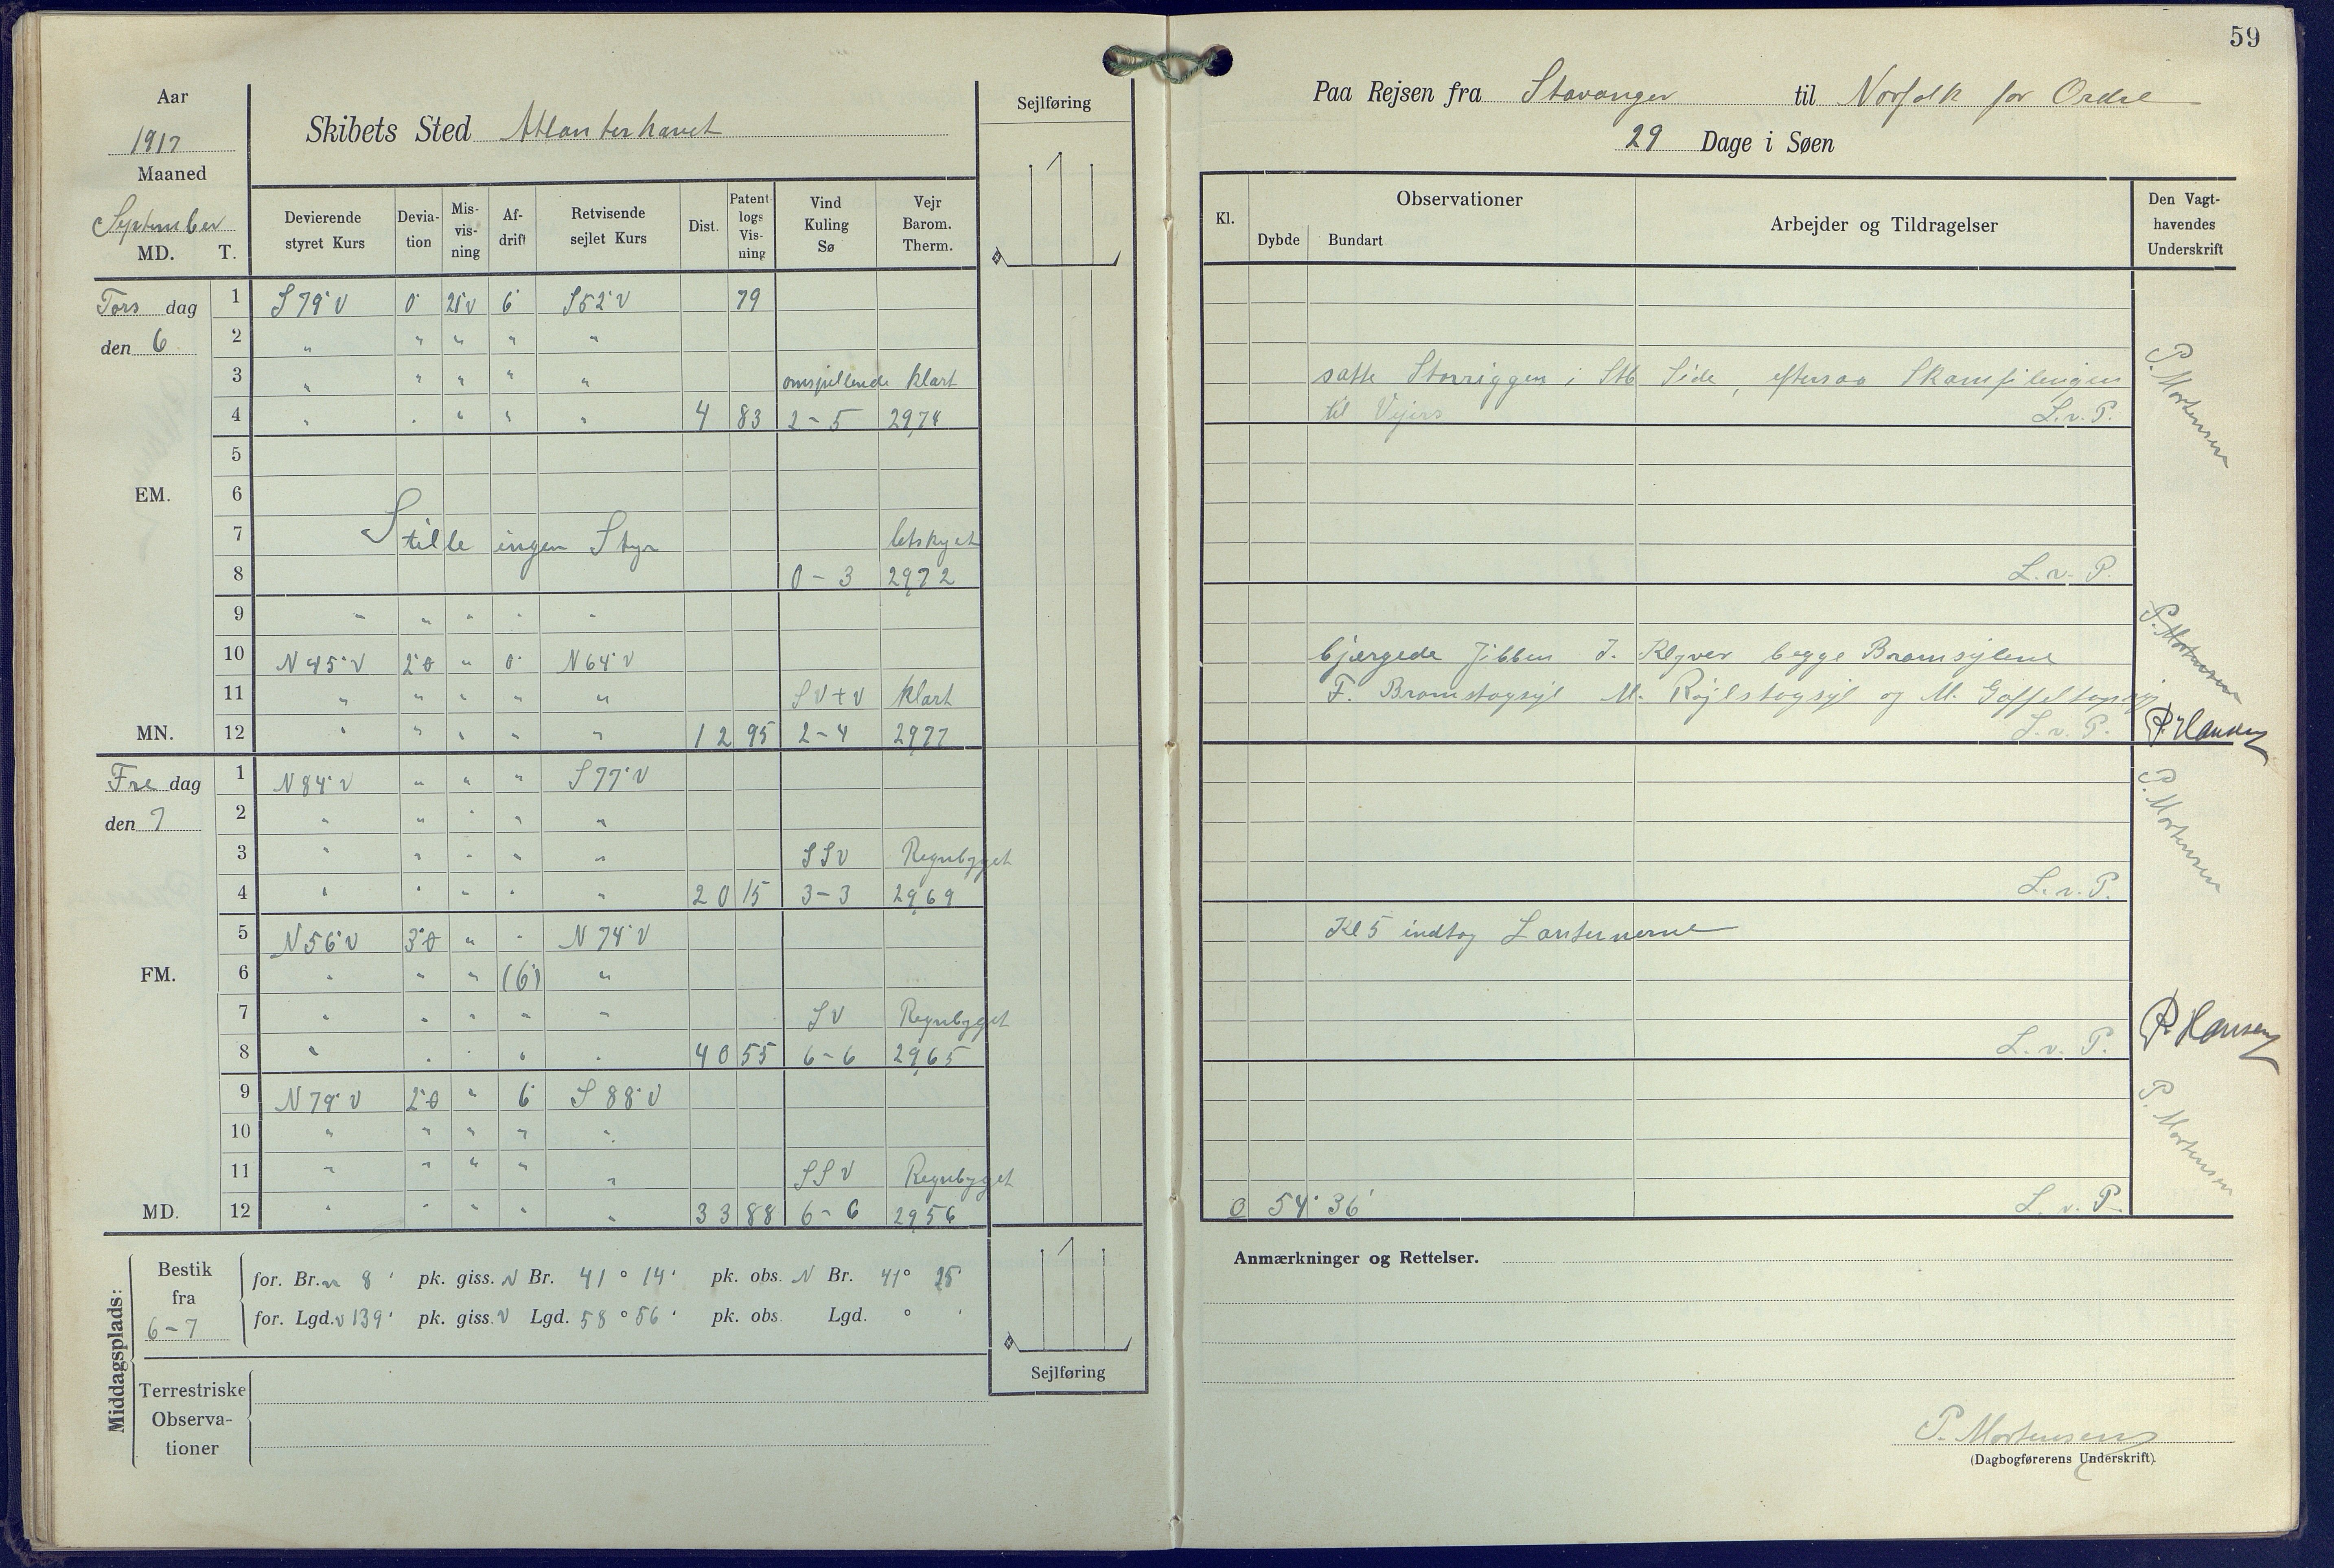 59
Aar
1917
Maaned
September
MD. T.
Skibets Sted Atlanterhavet
Sejlføring
Devierende styret Kurs
Deviation
Misvisning
Afdrift
Retvisende sejlet Kurs
Dist.
Patent logs Visning
Vind Kuling Sø
Vejr Barom. Therm.
Tors dag 1 S 79° V 0° 21 V 6° S 52° V 79
den 6 2 " " " " "
3 " " " " " omspillende klart
4 " " " " " 4 83 2-5 2974
5
EM. 6
7 Stille ingen Styr letskyet
8 0-3 2972
9 " " " " "
10 N 45° V 2° Ø " 0° N 64° V
11 " " " " " SV+V klart
MN. 12 " " " " " 12 95 2-4 2977
Fre dag 1 N 84° V " " " S 77° V
den 7 2 " " " " "
3 " " " " " SSV Regnbyget
4 " " " " " 20 15 3-3 2969
5 N 56° V 3° Ø " " N 74° V
FM. 6 " " " (6°) "
7 " " " " " SV Regnbyget
8 " " " " " 40 55 6-6 2965
9 N 79° V 2° Ø " 6° S 88° V
10 " " " " "
11 " " " " " SSV Regnbyget
MD. 12 " " " " " 33 88 6-6 2956
Middagsplads:
Bestik fra 6-7
for. Br. 8 ' pk. giss. N Br. 41 ° 14 ' pk. obs. N Br. 41 ° 25 '
for. Lgd. v 139 ' pk. giss. V Lgd. 58 ° 56 ' pk. obs. Lgd. ° '
Terrestriske Observationer
Sejlføring
Paa Rejsen fra Stavanger til Norfolk for Ordre
29 Dage i Søen
Kl.
Observationer
Dybde Bundart
Arbejder og Tildragelser
Den Vagthavendes Underskrift
satte Storriggen i Stb Side, eftersaa Skamfilingen
til Vejrs L. v. P.
P. Mortensen
L. v. P.
P. Mortensen
bjærgede Jibben J. Klyver begge Bramsejlene
F. Bramstagsejl M. Røjlstagsejl og M. Gaffeltopsejl
L. v. P. P. Hansen
P. Mortensen
L. v. P.
Kl 5 indtog Lanternerne
L. v. P. P. Hansen
P. Mortensen
54° 36' L. v. P.
Anmærkninger og Rettelser.
P. Mortensen
(Dagbogførerens Underskrift).